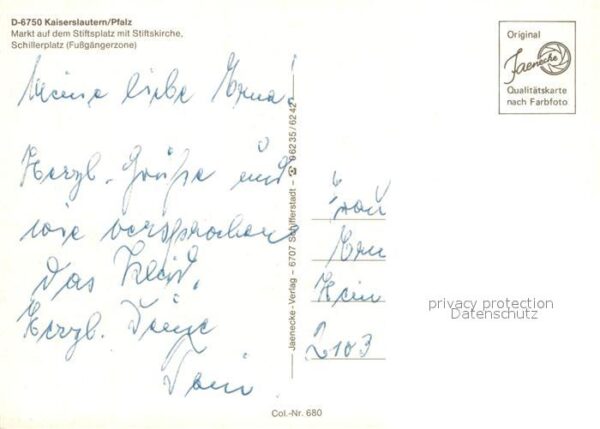 D-6750 Kaiserslautern/Pfalz
Markt auf dem Stiftsplatz mit Stiftskirche,
Schillerplatz (Fußgängerzone)
Original
Jaenecke
Qualitätskarte
nach Farbfoto
Meine liebe Erna!
Herzl. Grüße und
wie versprochen
das Kleid.
Herzl. Deine
Jaenecke-Verlag – 6707 Schifferstadt – ☎ 06235/6242
Frau
Ern
Hein
2103
privacy protection
Datenschutz
Col.-Nr. 680